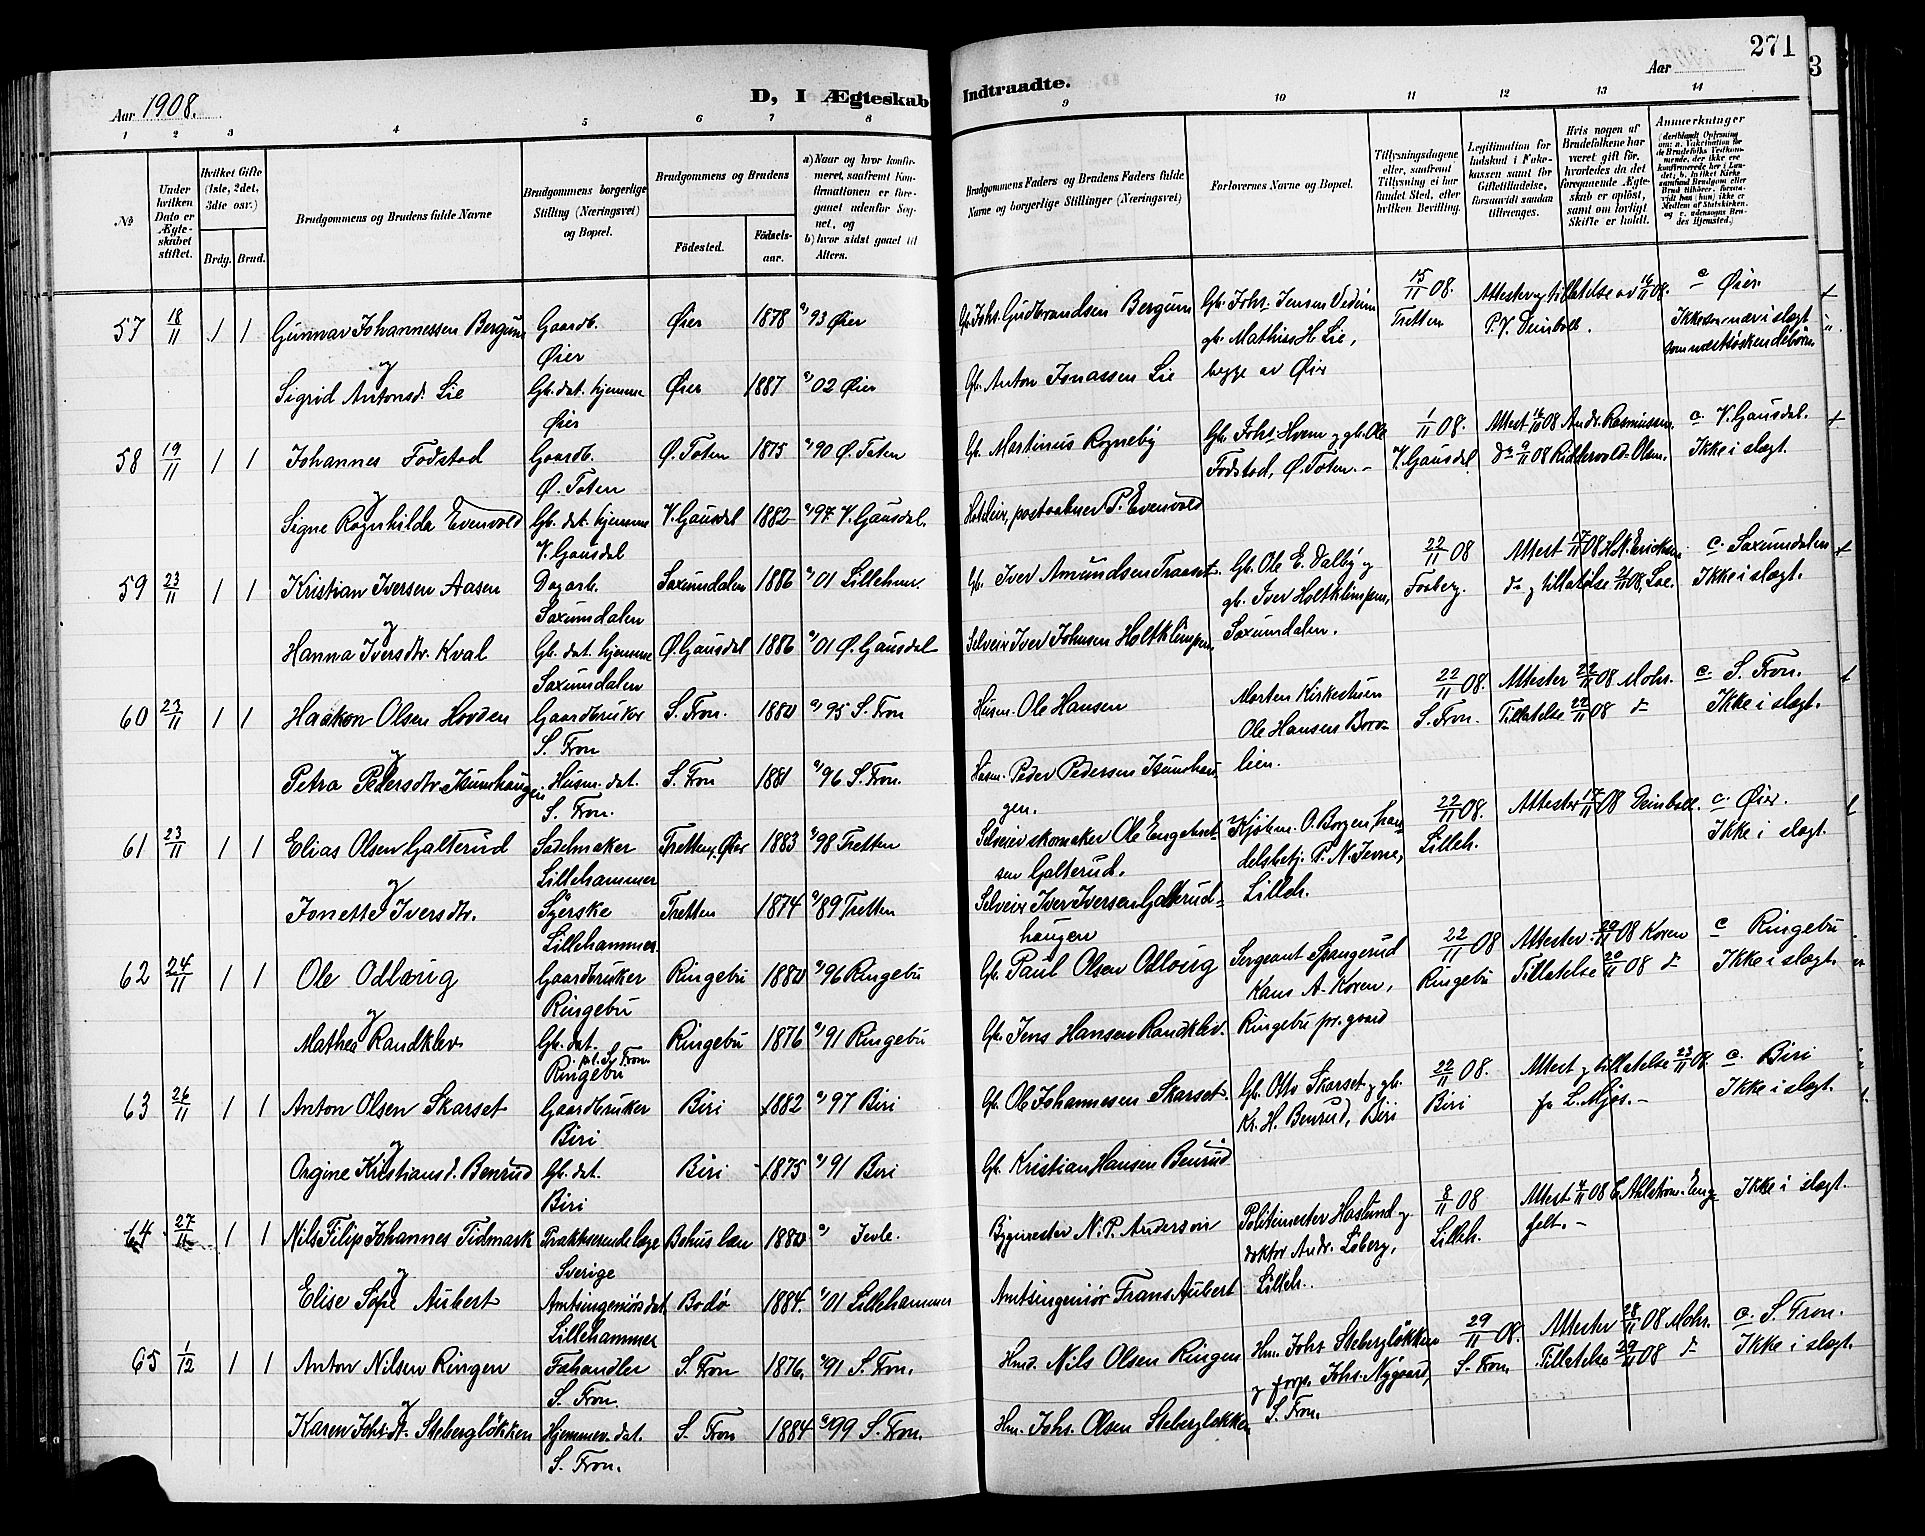 Aar 1908.
D, I Ægteskab
Indtraadte.
Aar
271
3
1 2 3 4 5 6 7 8 9 10 11 12 13 14
No
Under hvilken Dato er Ægteskabet stiftet.
Hvilket Gifte (1ste, 2det, 3die osv.)
Brdg. Brud.
Brudgommens og Brudens fulde Navne
Brudgommens borgerlige Stilling (Næringsvei) og Bopæl.
Brudgommens og Brudens
Födested.
Födselsaar.
a) Naar og hvor konfirmeret, saafremt Konfirmationen er foregaaet udenfor Sognet, og
b) hvor sidst gaaet til Alters.
Brudgommens Faders og Brudens Faders fulde Navne og borgerlige Stillinger (Næringsvei)
Forlovernes Navne og Bopæl.
Tillysningsdagene eller, saafremt Tillysning ei har fundet Sted, efter hvilken Bevilling.
Legitimation for Indskud i Enkekassen samt for Giftetilladelse, forsaavidt saadan tiltrænges.
Hvis nogen af Brudefolkene har været gift för, hvorledes da det foregaaende Ægteskab er oplöst, samt om lovligt Skifte er holdt.
Anmerkninger
57 18/11 1 1 Gunnar Johannessen Bergum Gaardb. Øier Øier 1878 a) 93 Øier Gb. Johs. Gudbrandsen Bergum Gb. Johs. Jensen Vedum gb. Mathias H. Lie, begge av Øier 15/11 08. Tretten Attester og tillatelse av 16/11 08. P.V. Deinboll. c Øier. Ikke saa nær i slegt som næstsøskendebørn
og
Sigrid Antonsd. Lie Gb. dat. hjemme Øier Øier 1887 a) 02 Øier Gb. Anton Jonassen Lie
58 19/11 1 1 Johannes Fodstad Gaardb. Ø. Toten Ø. Toten 1875 a) 90 Ø. Toten Gb. Martinus Rogneby Gb. Johs. Hvem og gb. Ole Fodstad, Ø. Toten. 1/11 08. V. Gausdal Attest 08 Andr. Rasmussen. do 9/11 08 Riddervold-Olsen. c. V. Gausdal. Ikke i slegt.
og
Signe Ragnhilda Evenvold Gb. dat. hjemme V. Gausdal V. Gausdal 1882 a) 97 V. Gausdal. Hoteleier, postaabner P. Evenvold
59 23/11 1 1 Kristian Iversen Aasen Dagarb. Saxumdalen Saxumdalen 1886 a) 01 Lilleham. Gb. Iver Amundsen Traaset. Gb. Ole E. Dalby og gb. Iver Holtklimpen, Saxumdalen. 22/11 08 Faaberg. Attest 08 H.K. Ericksen do og tillatelse 08, Lae. c. Saxumdalen Ikke i slegt.
og
Hanna Iversdtr. Kval Gb. dat. hjemme Saxumdalen Ø. Gausdal 1886 a) 01 Ø. Gausdal Selveier Iver Johnsen Holtklimpen.
60 23/11 1 1 Haakon Olsen Hovden Gaardbruker S. Fron S. Fron. 1880 a) 95 S. Fron Husm. Ole Hansen Morten Kirkestuen Ole Hansen Borolien. 22/11 08. S. Fron. Attester 22/11 08 Mohr. Tillatelse 22/11 08 do c. S. Fron. Ikke i slegt.
og
Petra Pedersdtr. Isumhaugen Husm. dat. S. Fron. S. Fron 1881 a) 96 S. Fron. Husm. Peder Pedersen Isumhaugen.
61 23/11 1 1 Elias Olsen Galterud Sadelmaker Lillehammer Tretten, Øier 1883 a) 98 Tretten Selveier skomaker Ole Engebretsen Galterud. Kjøbm. O. Borgen handelsbetj. P.N. Jevne, Lilleh. 22/11 08. Lilleh. Attester 17/11 08 Deinboll. c. Øier. Ikke i slegt.
og
Jonette Iversdtr. Syerske Lillehammer. Tretten 1874 a) 89 Tretten Selveier Iver Iversen Galterudhaugen
62 24/11 1 1 Ole Odlaug Gaardbruker Ringebu Ringebu 1880 a) 96 Ringebu Gb. Paul Olsen Odlaug Sergeant Spangerud Kans A. Koren, Ringebu pr. gaard 22/11 08 Ringebu Attester 20/11 08 Koren Tillatelse 20/11 08 do c Ringebu. Ikke i slegt.
og
Mathea Randklev Gb. dat. Ringebu p.t. S. Fron. Ringebu 1876 a) 91 Ringebu Gb. Jens Hansen Randklev.
63 26/11 1 1 Anton Olsen Skarset Gaardbruker Biri Biri 1882 a) 97 Biri Gb. Ole Johannesen Skarset. Gb. Otto Skarset og gb. Kr. H. Benrud, Biri 22/11 08. Biri Attest og tillatelse 23/11 08 fr L. Mjøs. c. Biri Ikke i slegt.
og
Orgine Kristiansd. Benrud Gb. dat. Biri Biri 1875 a) 91 Biri Gb. Kristian Hansen Benrud
64 27/11 1 1 Nils Filip Johannes Tidmark Praktiserende læge Sverige Bohus læn 1880 a) Jevle. Byggmester N.P. Anderson Politimester Haslund og doktor Andr. Isberg, Lilleh. 8/11 08 Lilleh. Attest 08 C. Ahlström. Engfelt. Ikke i slegt.
og
Elise Sofie Aubert Amtsingeniørsdat. Lillehammer Bodø 1884. a) 01 Lillehammer Amtsingeniør Frans Aubert
65 1/12 1 1 Anton Nilsen Ringen Fæhandler S. Fron. S. Fron 1876. a) 91 S. Fron. Hmd. Nils Olsen Ringen Hm. Johs. Stebergløkken og forp. Johs. Nygaard, S. Fron. 29/11 08. S. Fron. Attester 28/11 08 Mohr. Tillatelse 29/11 08 do c. S. Fron. Ikke i slegt.
og
Karen Johs. dt. Stebergløkken Hjemmev. dat. S. Fron. S. Fron 1884 a) 99 S. Fron. Hm. Johs. Olsen Stebergløkken